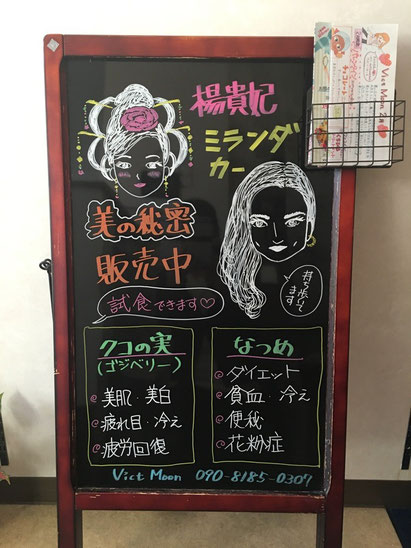 楊貴妃
ミランダ
カー
美の秘密
販売中
試食できます♡
持ち歩いて
ます
クコの実
(ゴジベリー)
・美肌・美白
・疲れ目・冷え
・疲労回復
なつめ
・ダイエット
・貧血・冷え
・便秘
・花粉症
Vict Moon 090-8185-0307
Vict Moon